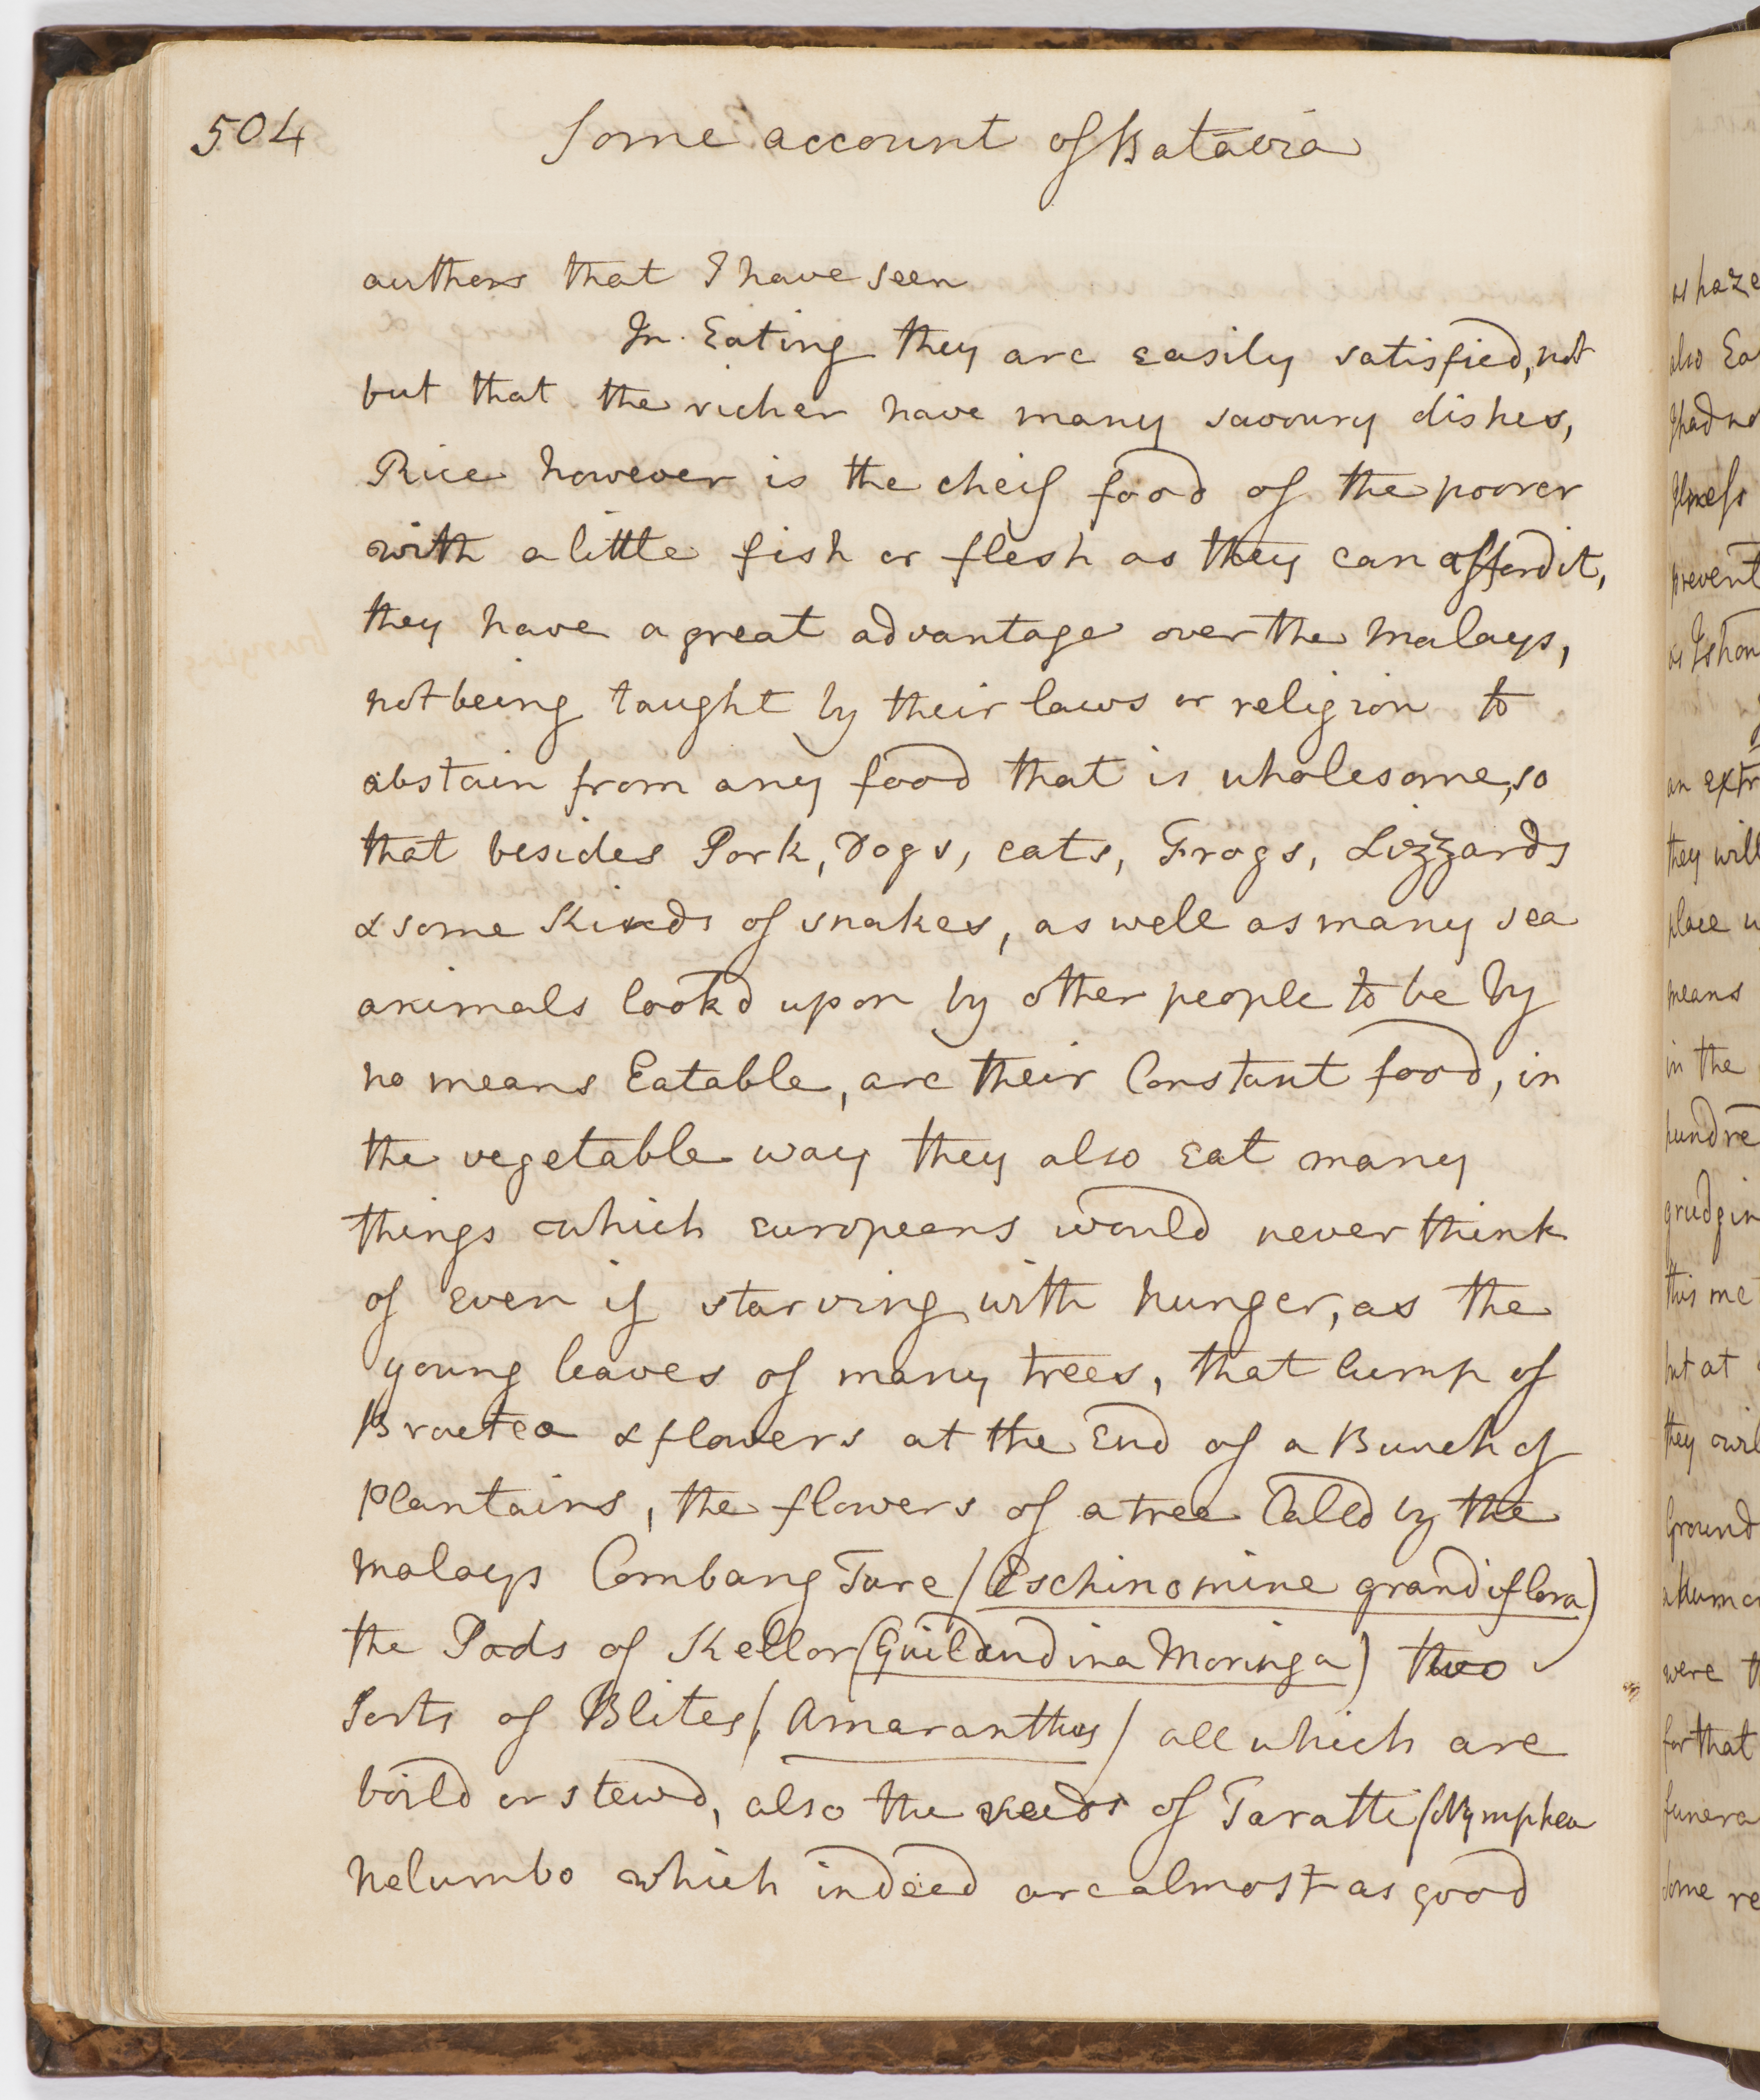 504
Some account of Batavia
authors that I have seen
In Eating they are easily satisfied, not
but that the richer have many savoury dishes,
Rice however is the cheif food of the poorer
with a little fish or flesh as they can afford it,
they have a great advantage over the Malays,
not being taught by their laws or religion to
abstain from any food that is wholesome, so
that besides Pork, Dogs, cats, Frogs, Lizzards
& some Kinds of snakes, as well as many sea
animals lookd upon by other people to be by
no means Eatable, are their Constant food, in
the vegetable way they also eat many
things which europeans would never think
of even if starving with hunger, as the
young leaves of many trees, that lump of
Bractea & flowers at the End of a Bunch of
Plantains, the flowers of a tree Calld by the
Malays Combang Ture (Eschinomine grandiflora)
the Pods of Kellor (Guilandina Moringa) two
Sorts of Blites (Amaranthus) all which are
boild or stewd, also the seeds of Taratti (Nymphea
Nelumbo which indeed are almost as good
as haze
also Ea
I had no
Illness
prevent
an extr
they will
place w
means
in the
hundre
grudgin
this me
but at
they wil
Ground
were t
for that
funera
some re